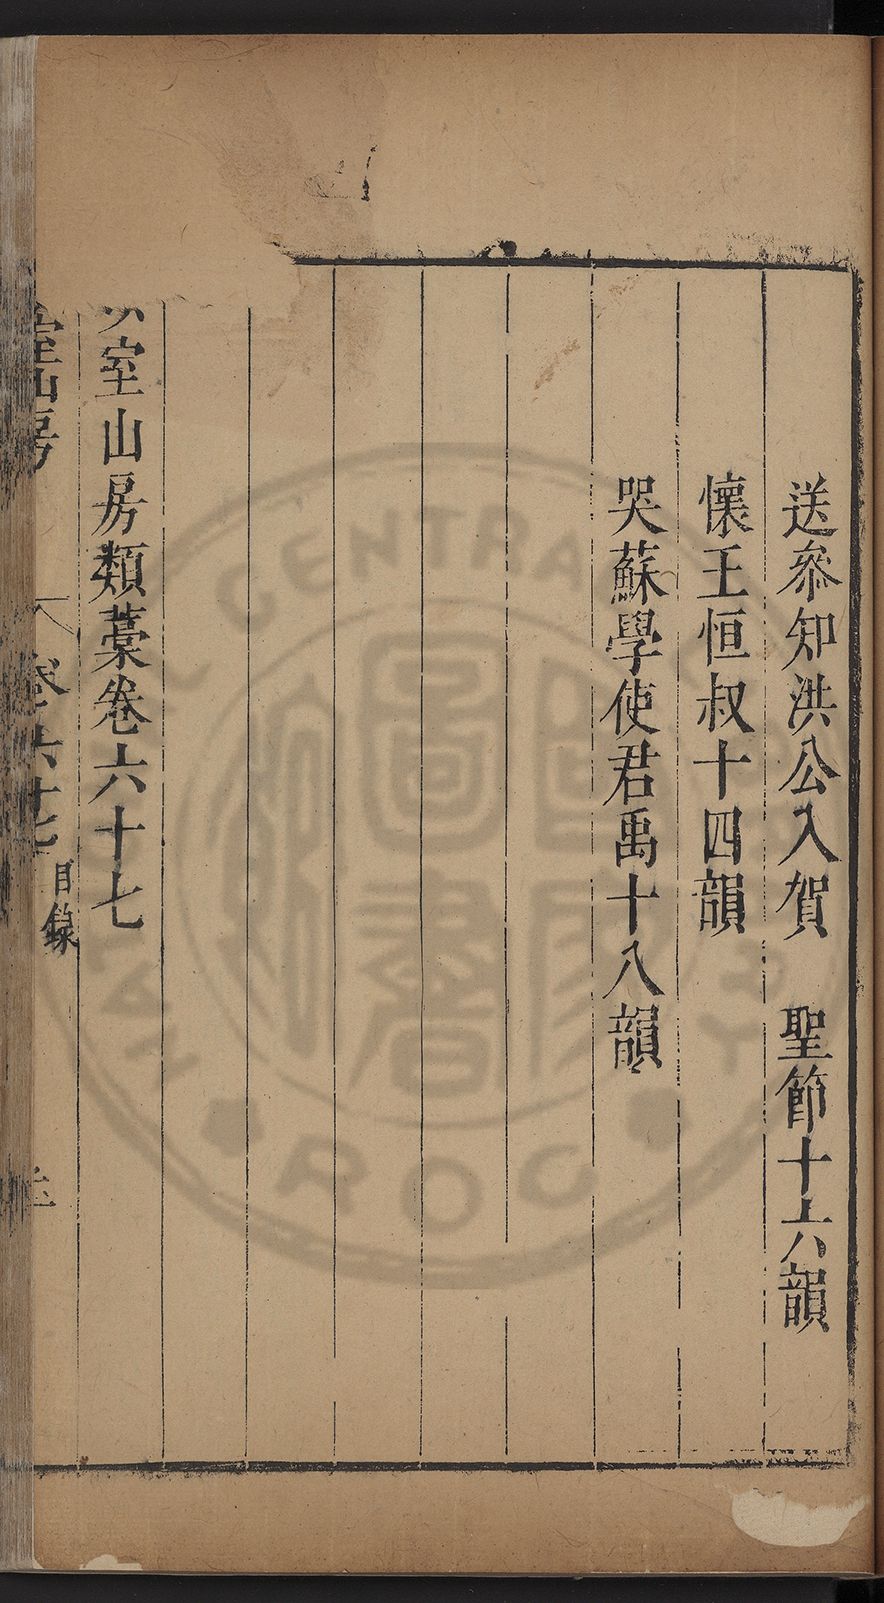 送叅知洪公入賀　聖節十六韻
懷王恒叔十四韻
哭蘇學使君禹十八韻
室山房類藁卷六十七
室山房 卷六十七 目錄